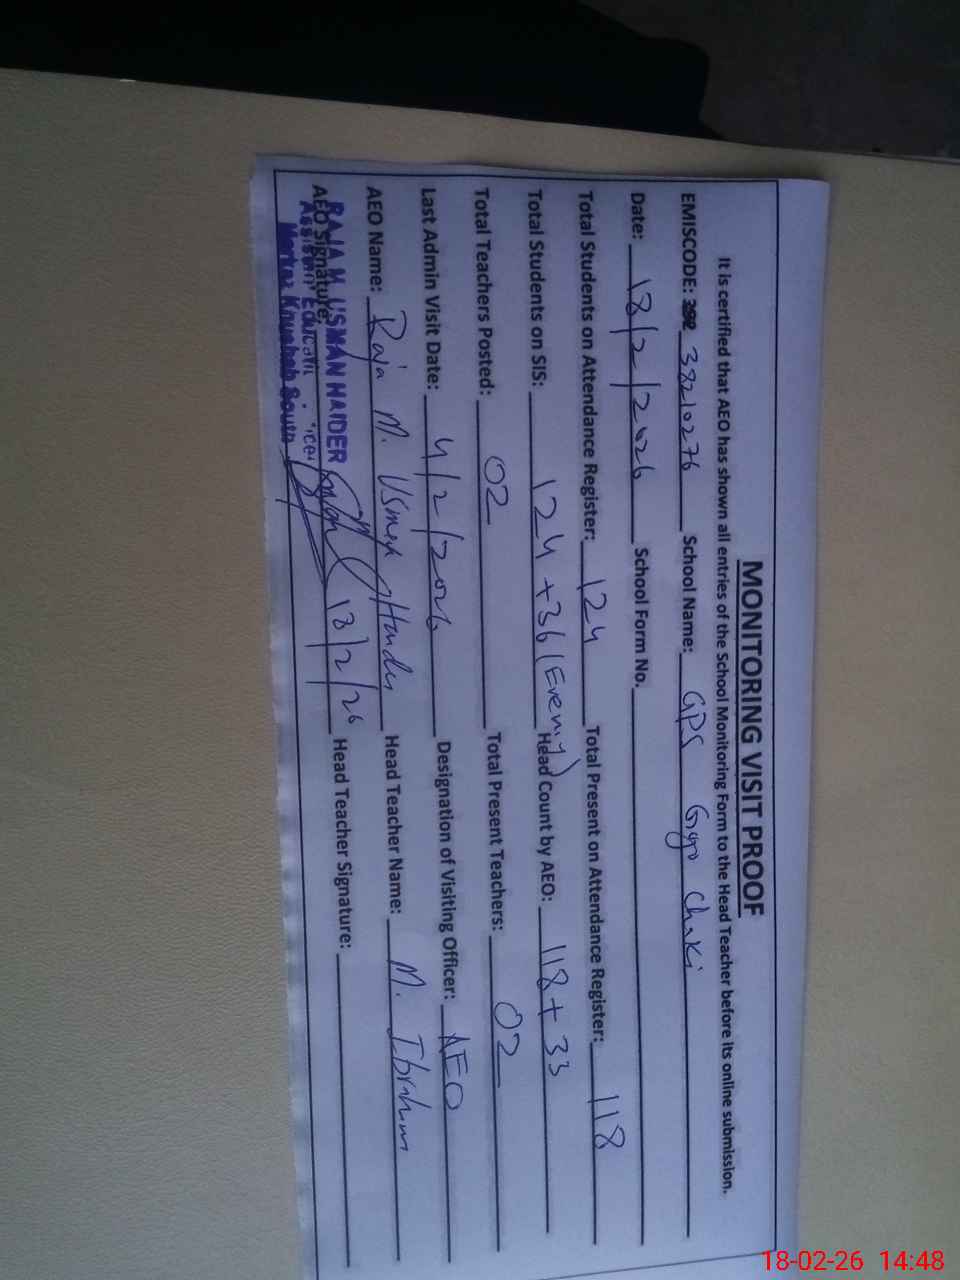 MONITORING VISIT PROOF
It is certified that AEO has shown all entries of the School Monitoring Form to the Head Teacher before its online submission.
EMISCODE: 38210276 School Name: GPS Gogo Chaki
Date: 18/2/2026 School Form No.
Total Students on Attendance Register: 124 Total Present on Attendance Register: 118
Total Students on SIS: 124 + 36 (Evening) Head Count by AEO: 118 + 33
Total Teachers Posted: 02 Total Present Teachers: 02
Last Admin Visit Date: 4/2/2026 Designation of Visiting Officer: AEO
AEO Name: Raja M. Usman Haider Head Teacher Name: M. Ibrahim
AEO Signature: 18/2/26 Head Teacher Signature:
RAJA M. USMAN HAIDER
Assistant Education
South
18-02-26 14:48